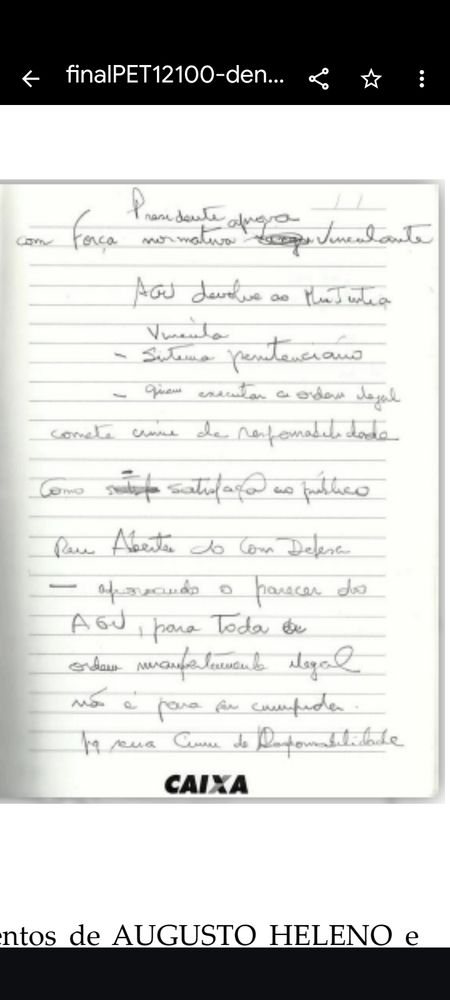 finalPET12100-den...
Presidente aprova
com Força normativa Vinculante
AGU devolve ao MinJustiça
Vincula
- Sistema penitenciário
- quem executar a ordem ilegal
comete crime de responsabilidade
Como satisfação ao público
Aberta do Com Defesa
- aprovando o parecer do
AGU, para Toda
ordem manifestamente ilegal
não é para ser cumprida.
pq seria Crime de Responsabilidade
CAIXA
entos de AUGUSTO HELENO e